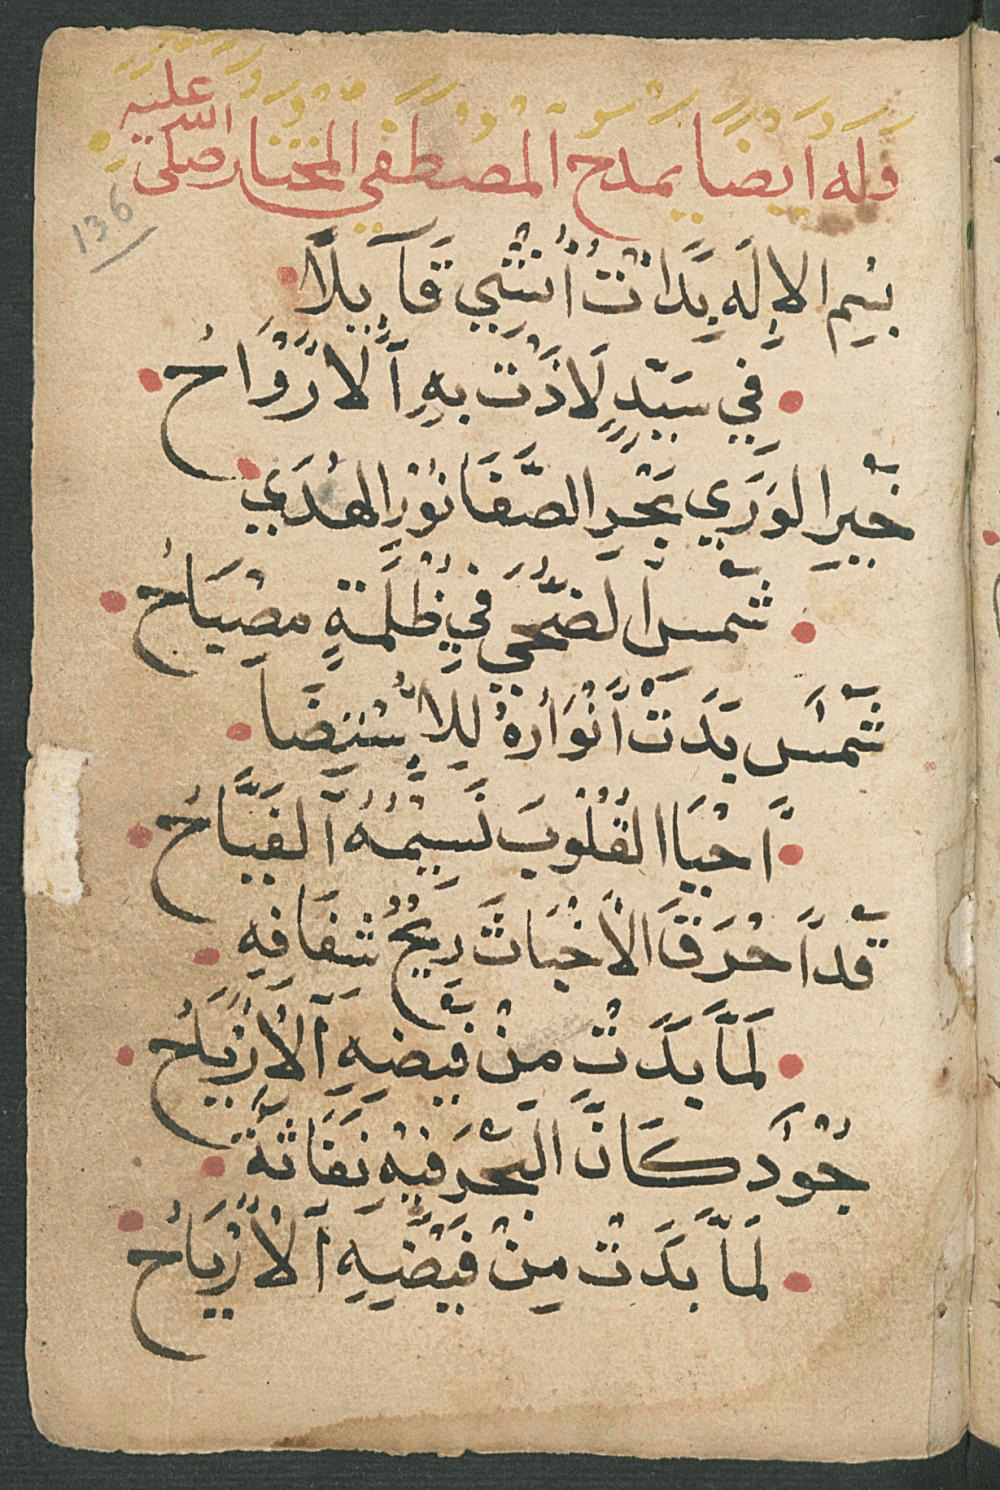 وَلَهُ اَيْضًا يمدح المُصْطَفَي المُخْتار صَلَّي اللّٰه عليه
136
بِسْمِ الاِلَهِ بَدَاتُ اُنْشِي قَآيِلًا
فِي سَيِّدٍ لَاذَتْ بِهِ اَلْارْوَاحُ
خَيرِ الوَرَي بَحْرِ الصَّفَا نُوْرِ الهُدَي
شَمْسِ الضُّحَي فِي ظُلْمَةٍ مِصْبَاحُ
شَمْسٌ بَدَتْ اَنْوَارُهُ لِلاسْتِضَا
اَحْيَا القُلُوْبَ نَسِيْمُهُ الفَيَّاحُ
قَد اَحْرَقَ الاَخْبَاثَ رِيْحُ شِفَافِهِ
لَمَّا بَدَتْ مِنْ فَيضِهِ اَلْارْيَاحُ
جُوْدٌ كَانَّ البَحْرَ فِيْهِ نَفَاثَةٌ
لَمَّا بَدَتْ مِنْ فَيْضِهِ اَلْارْيَاحُ